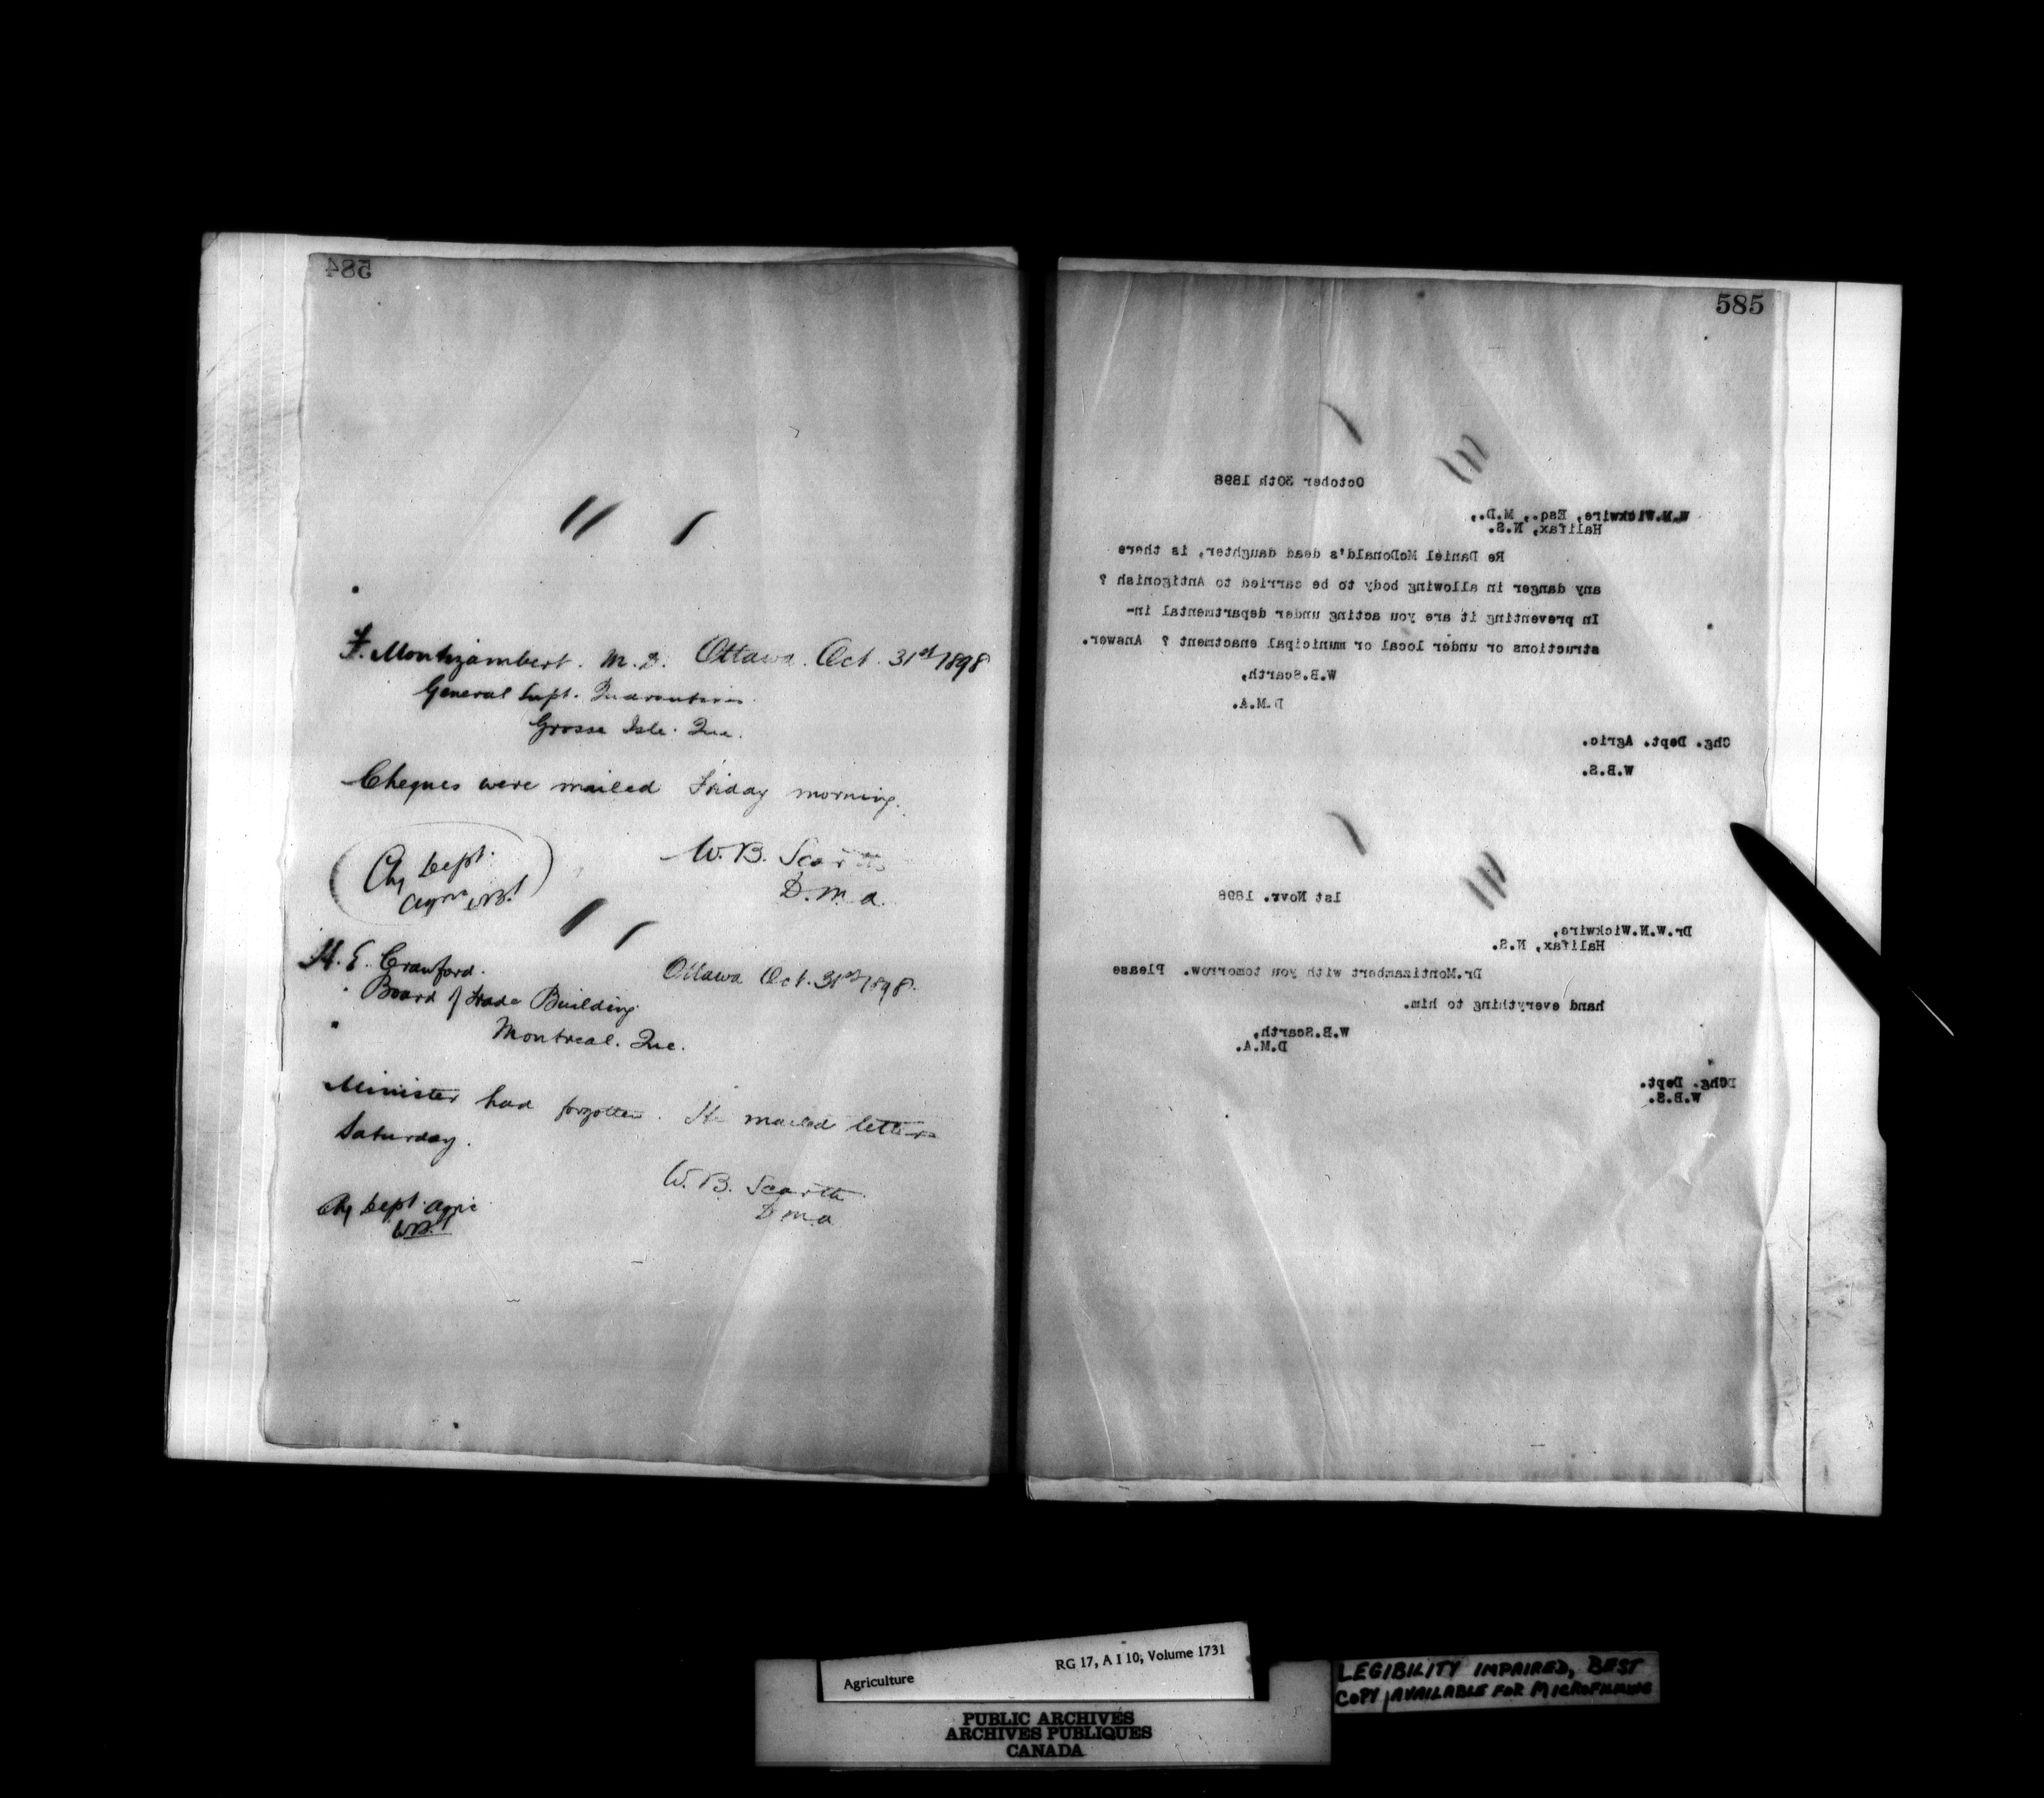 584
F. Montizambert. M. D. Ottawa. Oct. 31st 1898
General Supt. Quarantines
Grosse Isle. Que.
Cheques were mailed Friday morning.
W. B. Scarth
D. M. A.
Chg Dept.
Agric W.B.S
H. E. Crawford.
Ottawa Oct. 31st 1898.
Board of Trade Building
Montreal. Que.
Minister had forgotten. He mailed letters
Saturday.
W. B. Scarth
D M A
Chg Dept. Agric
W.B.S
585
October 30th 1898
W.M.Wickwire, Esq., M.D.,
Halifax, N.S.
Re Daniel McDonald's dead daughter, is there
any danger in allowing body to be carried to Antigonish ?
In preventing it are you acting under departmental in-
structions or under local or municipal enactment ? Answer.
W.B.Scarth,
D.M.A.
Chg. Dept. Agric.
W.B.S.
1st Novr. 1898
Dr.W.N.Wickwire,
Halifax, N.S.
Dr.Montizambert with you tomorrow. Please
hand everything to him.
W.B.Scarth,
D.M.A.
Chg. Dept.
W.B.S.
Agriculture RG 17, A I 10, Volume 1731
PUBLIC ARCHIVES
ARCHIVES PUBLIQUES
CANADA
LEGIBILITY IMPAIRED, BEST
COPY AVAILABLE FOR MICROFILMING